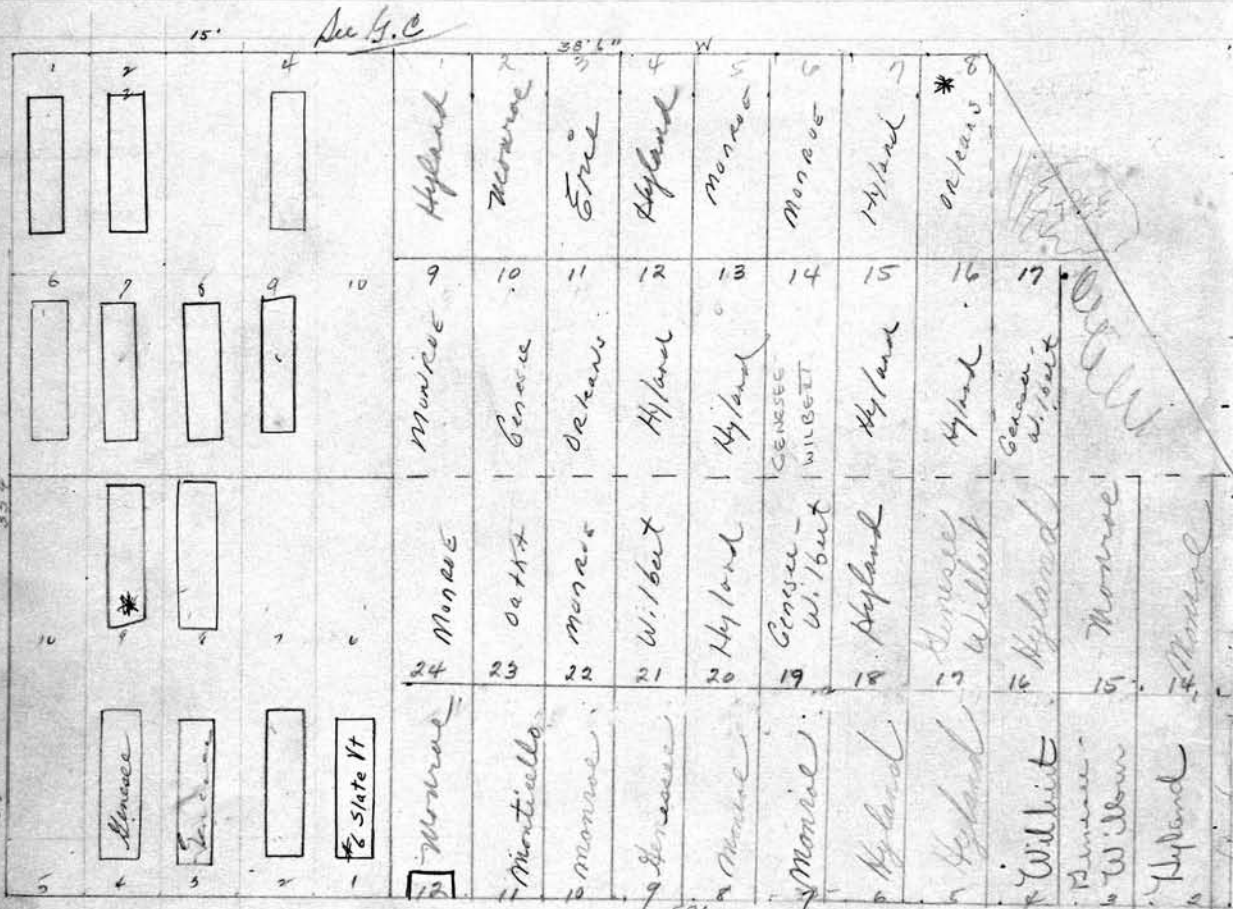 15'
See G.C
38'6" W
1 2 4
2
1 2 3 4 5 6 7 * 8
Hyland Monroe Erie Hyland Monroe MONROE Hyland ORleans
6 7 8 9 10
9 10 11 12 13 14 15 16 17
MONROE Genesee ORleans Hyland Hyland GENESEE WILBERT Hyland Hyland Genesee-Wilbert
Well
334
MONROE Oatka MONROE Wilbert Hyland Genesee-Wilbert Hyland Genesee Wilbert Hyland Monroe Monroe
*
10 9 8 7 6
24 23 22 21 20 19 18 17 16 15 14
Genesee
* 6 Slate Vt
Monroe Monticello Monroe Genesee Monroe Monroe Hyland Hyland Wilbert Genesee-Wilbur Hyland
5 4 3 2 1
12 11 10 9 8 7 6 5 4 3